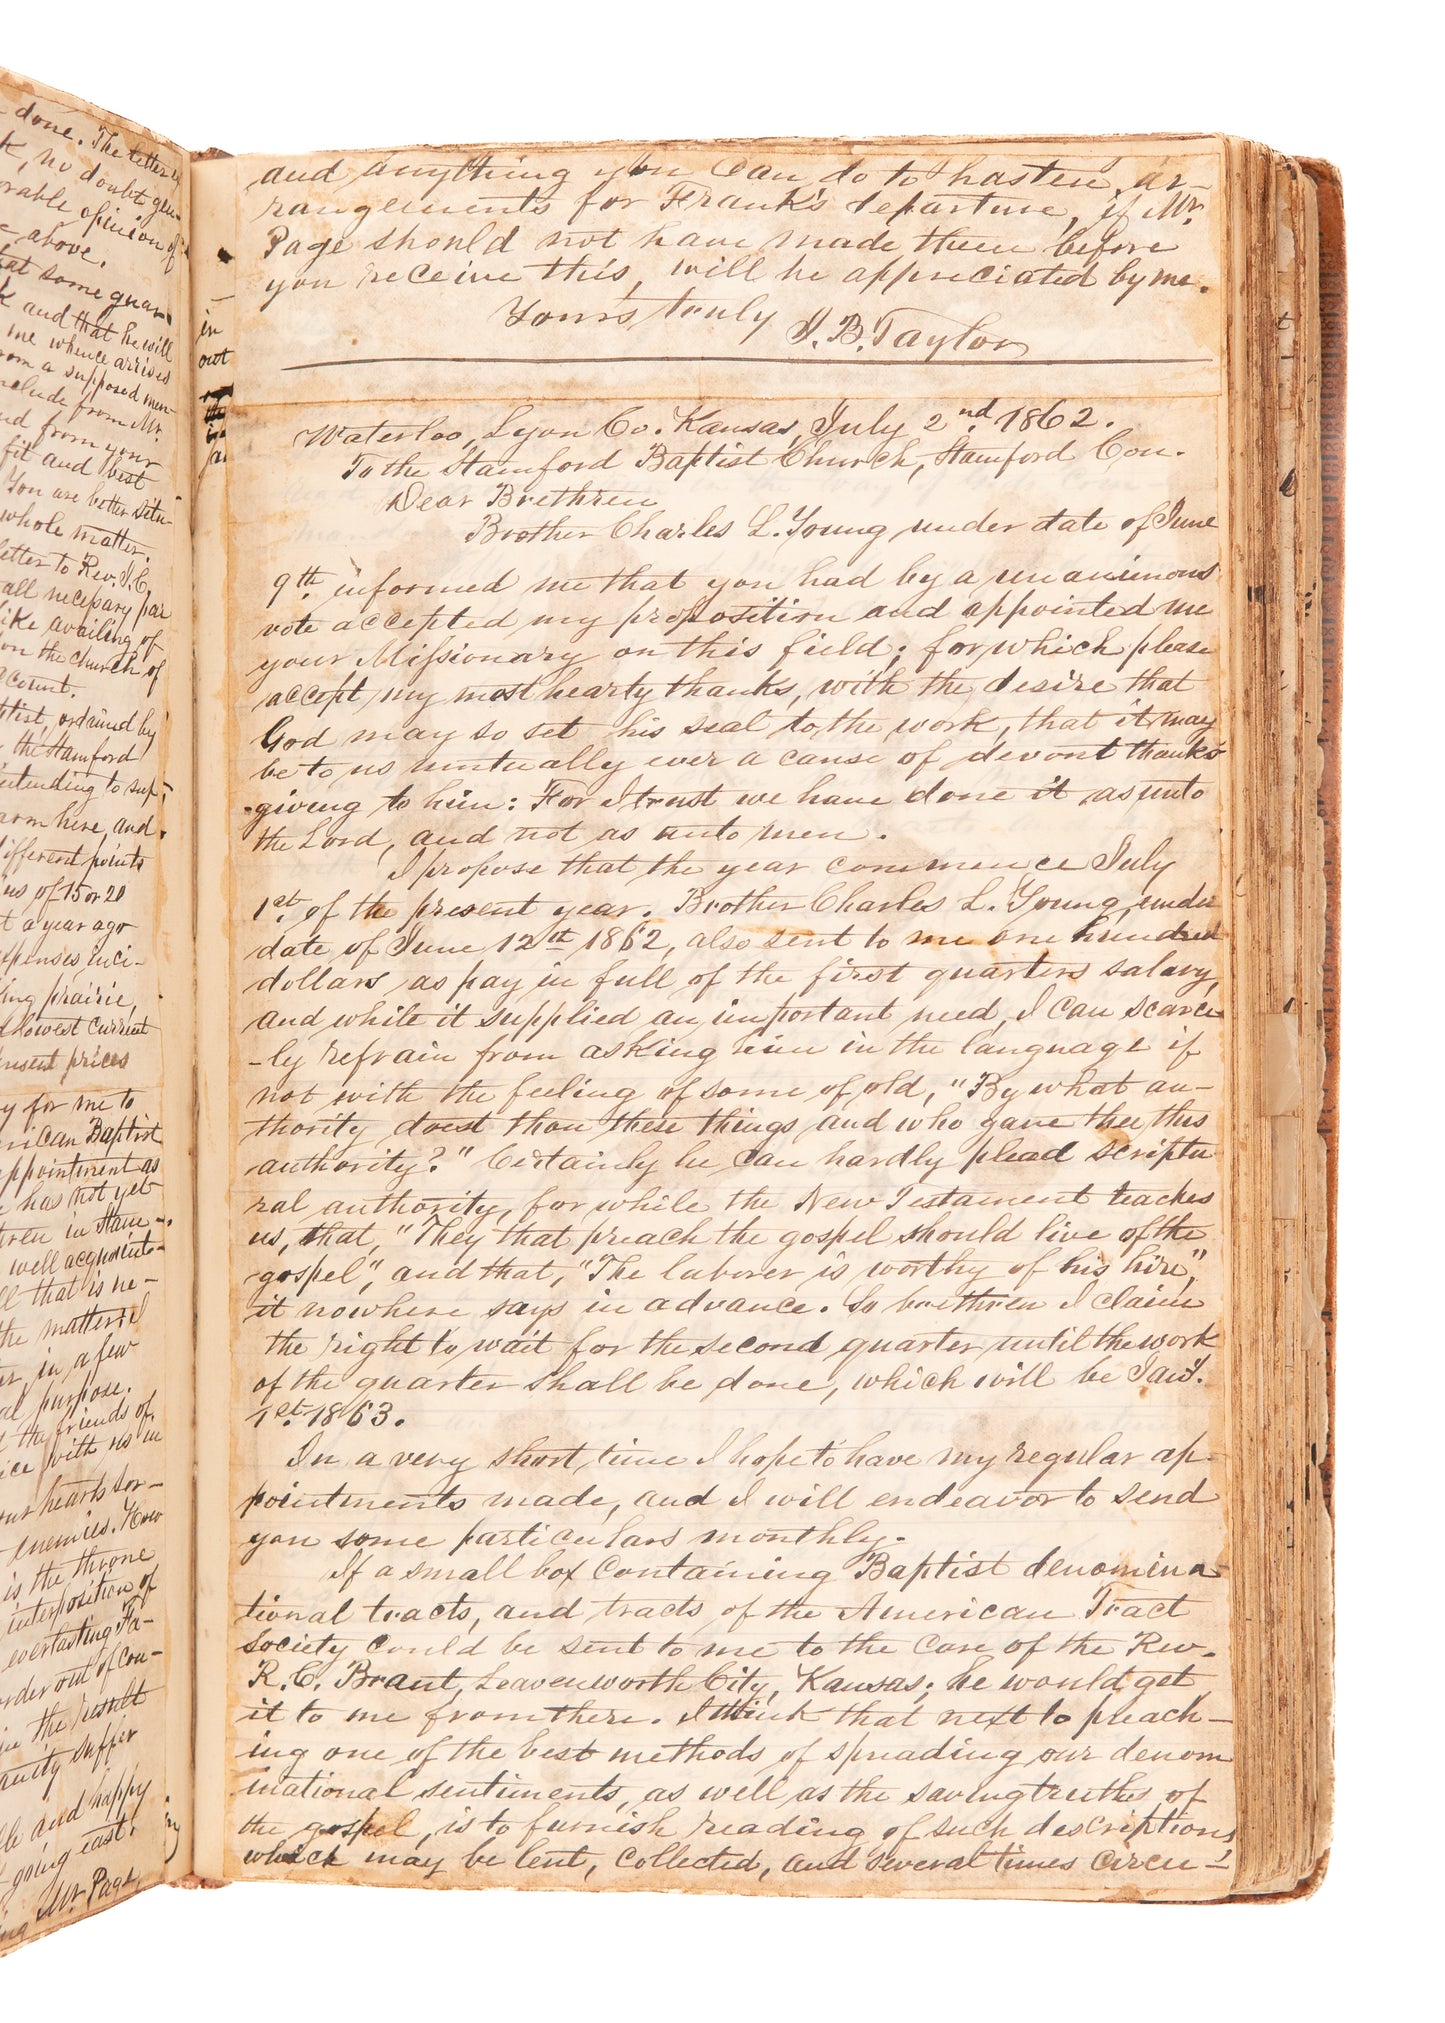 done. The letter is
k, no doubt gen-
orable opinion of
above.
at some guar-
k and that he will
me whence arrises
rom a supposed men-
nclude from Mr.
nd from your
fit and best
You are better situ-
whole matter.
letter to Rev. I. C.
all necessary par
like availing of
on the church of
account.
ptist, ordained by
the Stamford
ntending to sup-
arm here, and
different points
us of 15 or 20
t a year ago
xpenses, inci-
king prairie,
lowest current
present prices
y for me to
rican Baptist
appointment as
e has not yet
ren in Stam-
well acquainte-
ll that is ne-
the matter. I
er, in a few
al purpose.
the friends of
ice with us in
our hearts sor-
enemies. How
is the throne
interposition of
everlasting Fa-
order out of con-
the result
suffer
ble, and happy
going east.
ing Mr. Page,
in
out
and anything you can do to hasten ar-
rangements for Frank's departure, if Mr.
Page should not have made them before
you receive this, will be appreciated by me.
Yours truly I. B. Taylor
Waterloo, Lyon Co. Kansas, July 2nd. 1862.
To the Stamford Baptist Church, Stamford Con.
Dear Brethren
Brother Charles L. Young under date of June
9th. informed me that you had by a unanimous
vote accepted my proposition and appointed me
your Missionary on this field; for which please
accept my most hearty thanks, with the desire that
God may so set his seal to the work, that it may
be to us mutually ever a cause of devout thanks-
-giving to him: For I trust we have done it as unto
the Lord, and not as unto men.
I propose that the year commence July
1st. of the present year. Brother Charles L. Young, under
date of June 12th 1862, also sent to me one hundred
dollars as pay in full of the first quarters salary,
and while it supplied an important need, I can scarce-
-ly refrain from asking him in the language if
not with the feeling of some of old, "By what au-
thority doest thou these things and who gave thee this
authority?" Certainly he can hardly plead scriptu
ral authority, for while the New Testament teaches
us, that, "They that preach the gospel should live of the
gospel", and that, "The laborer is worthy of his hire,"
it nowhere says in advance. So brethren I claim
the right to wait for the second quarter until the work
of the quarter shall be done, which will be Jany.
1st. 1863.
In a very short time I hope to have my regular ap-
pointments made, and I will endeavor to send
you some particulars monthly.
If a small box containing Baptist denomina-
tional tracts, and tracts of the American Tract
Society could be sent to me to the care of the Rev.
R. C. Brant, Leavenworth City, Kansas; he would get
it to me from there. I think that next to preach-
ing one of the best methods of spreading our denom
inational sentiments, as well as the saving truths of
the gospel, is to furnish reading of such descriptions
which may be lent, collected, and several times circu-